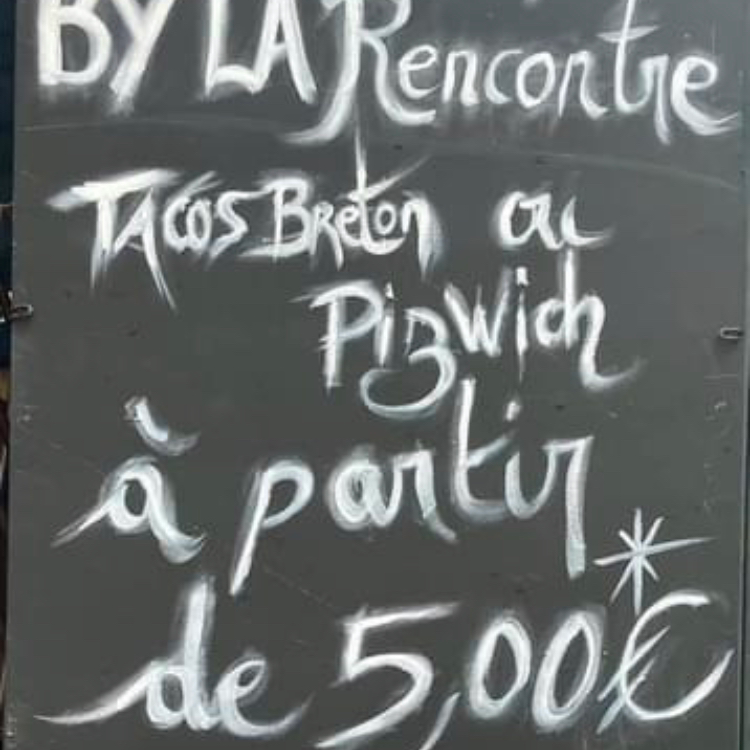 BY LA Rencontre
TACOS Breton ou
Pizwich
à partir
de 5,00€*